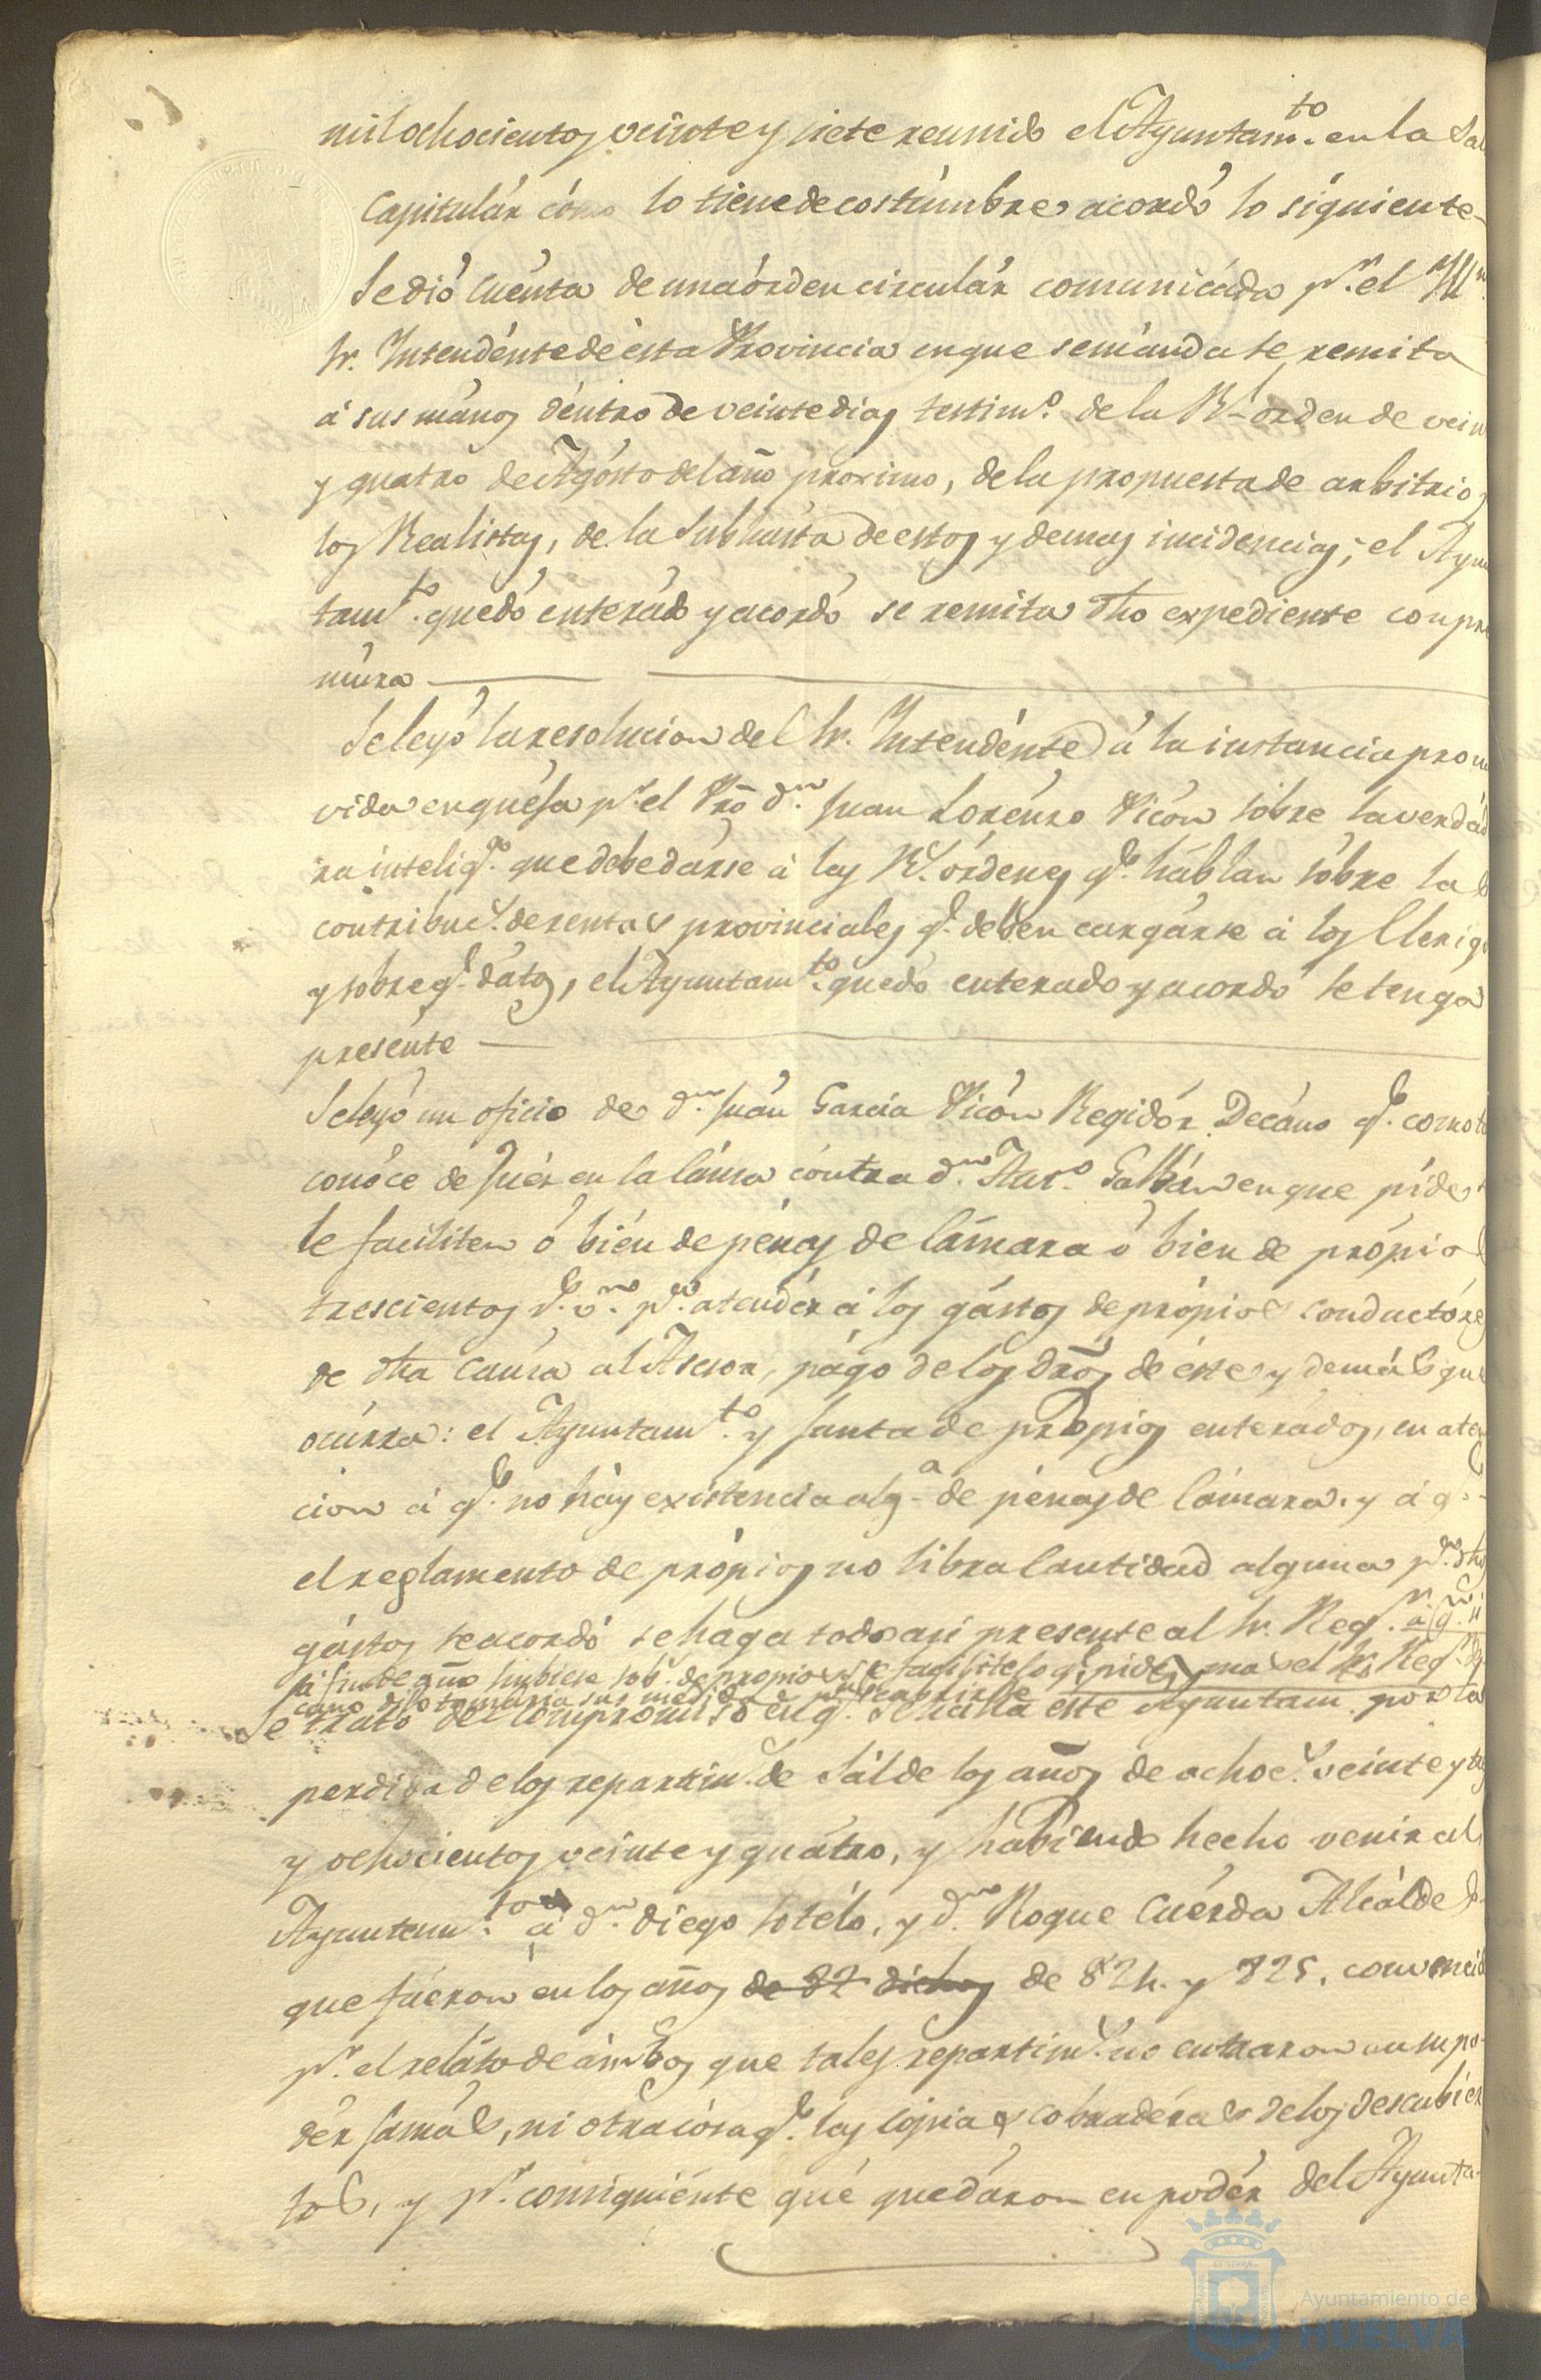 mil ochocientos veinte y siete reunido el Ayuntamto. en la Sal
Capitulár cómo lo tiene de costúmbre acordó lo síguiente
Se dió cuénta de una órden circulár comunicáda pr. el
Sr. Intendénte de ésta Provincia en que se mánda se remita
á sus mános déntro de veinte dias testimo. de la Rl. orden de vein
y quatro de Agósto del año proximo, de la propuesta de arbitrios
los Realistas, de la Subhásta de estos y demas incidencias; el Ayun
tamto. quedó enterádo y acordó se remita dho expediente con pre
múra
Se leyó la resolucion del Sr. Intendénte á la instancia promo
vida en quéja pr. el Pro. dn. Juan Lorénzo Picón sóbre la verdád
ra inteliga. que debe dárse á las Rs. órdenes qe. háblan sóbre la
contribucn. de rentas provinciales qe. deben cargárse á los Clerigo
y sobre qe. dátos, el Ayuntamto. quedó enterado y acordó se tenga
presénte
Se leyó un oficio de dn. Juán García Picón Regidór Decáno qe. como
conóce de Juéz en la Cáusa cóntra dn. Franco. Galván en que píde
se faciliten ó bién de pénas de Cámara ó bien de própios
trescientos rs. vn. pa. atendér á los gástos de própios conductóres
de dha Cáusa al Asesor, págo de los dros de éste y demás que
ocúrra: el Ayuntamto. y Junta de própios enterádos, en aten
cion á qe. no háy existencia alga. de pénas de Cámara, y á qe.
el reglamento de própios no libra Cantidad alguna pa. dhos
gástos se acordó se haga todo asi presente al Sr. Regr.
Se trató del compromiso en qe. se halla este Ayuntam. por la
perdida de los repartimtos. de Sál de los años de ochocs. veinte y tres
y ochocientos veinte y quátro, y habiendo hecho venir al
Ayuntamto. á dn. Diego Sotélo, y dn. Roque Cuérda Alcálde
que fuéron en los años de 82 dichos de 824. y 825. convencido
pr. el reláto de ámbos que tales repartimtos. no entraron en su po-
dér jamás, ni otra cósa qe. las cópias cobradéras de los descubier
tos, y pr. consiguiénte qué quedáron en podér del Ayunta-
Ayuntamiento de
HUELVA